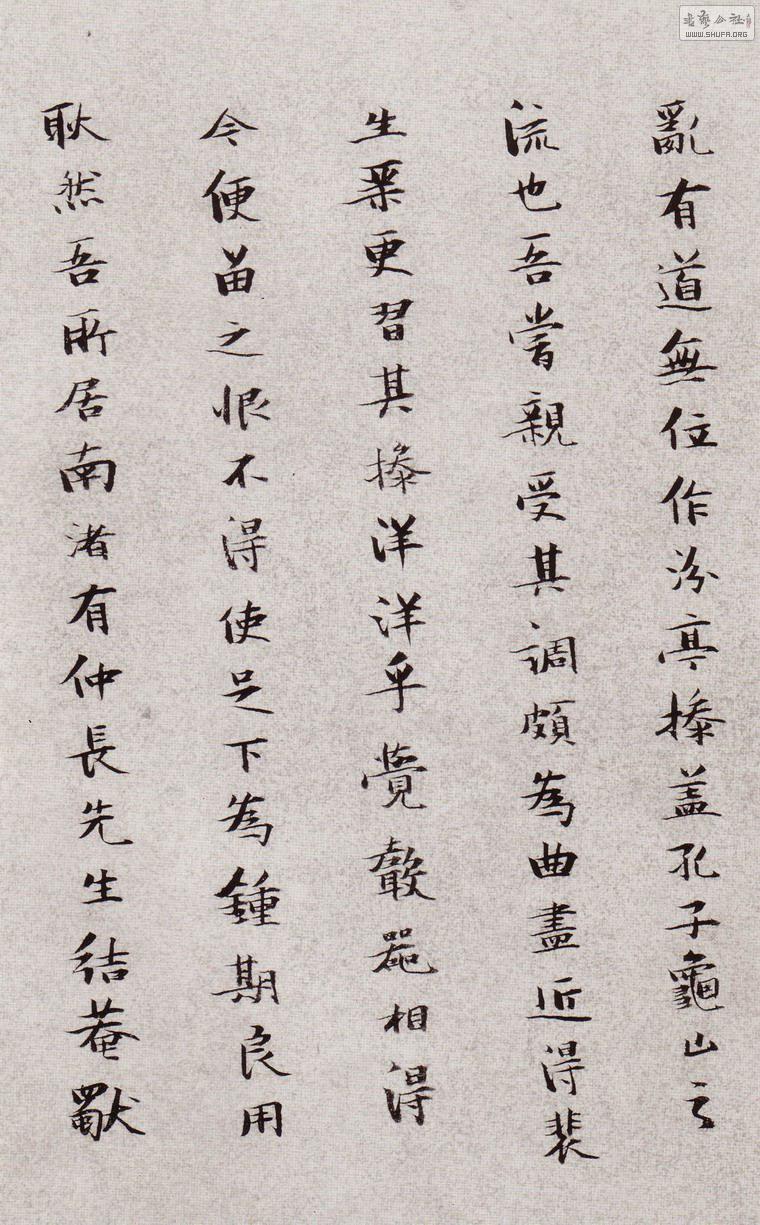 亂有道無位作汾亭操盖孔子龜山之
流也吾嘗親受其調頗為曲盡近得裴
生琴更習其操洋洋乎覺聲器相得
今便留之恨不得使足下為鍾期良用
耿然吾所居南渚有仲長先生結菴獨
書藝公社
WWW.SHUFA.ORG